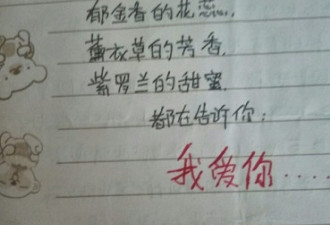 郁金香的花蕊,
薰衣草的芳香.
紫罗兰的甜蜜.
都在告诉你:
我爱你....